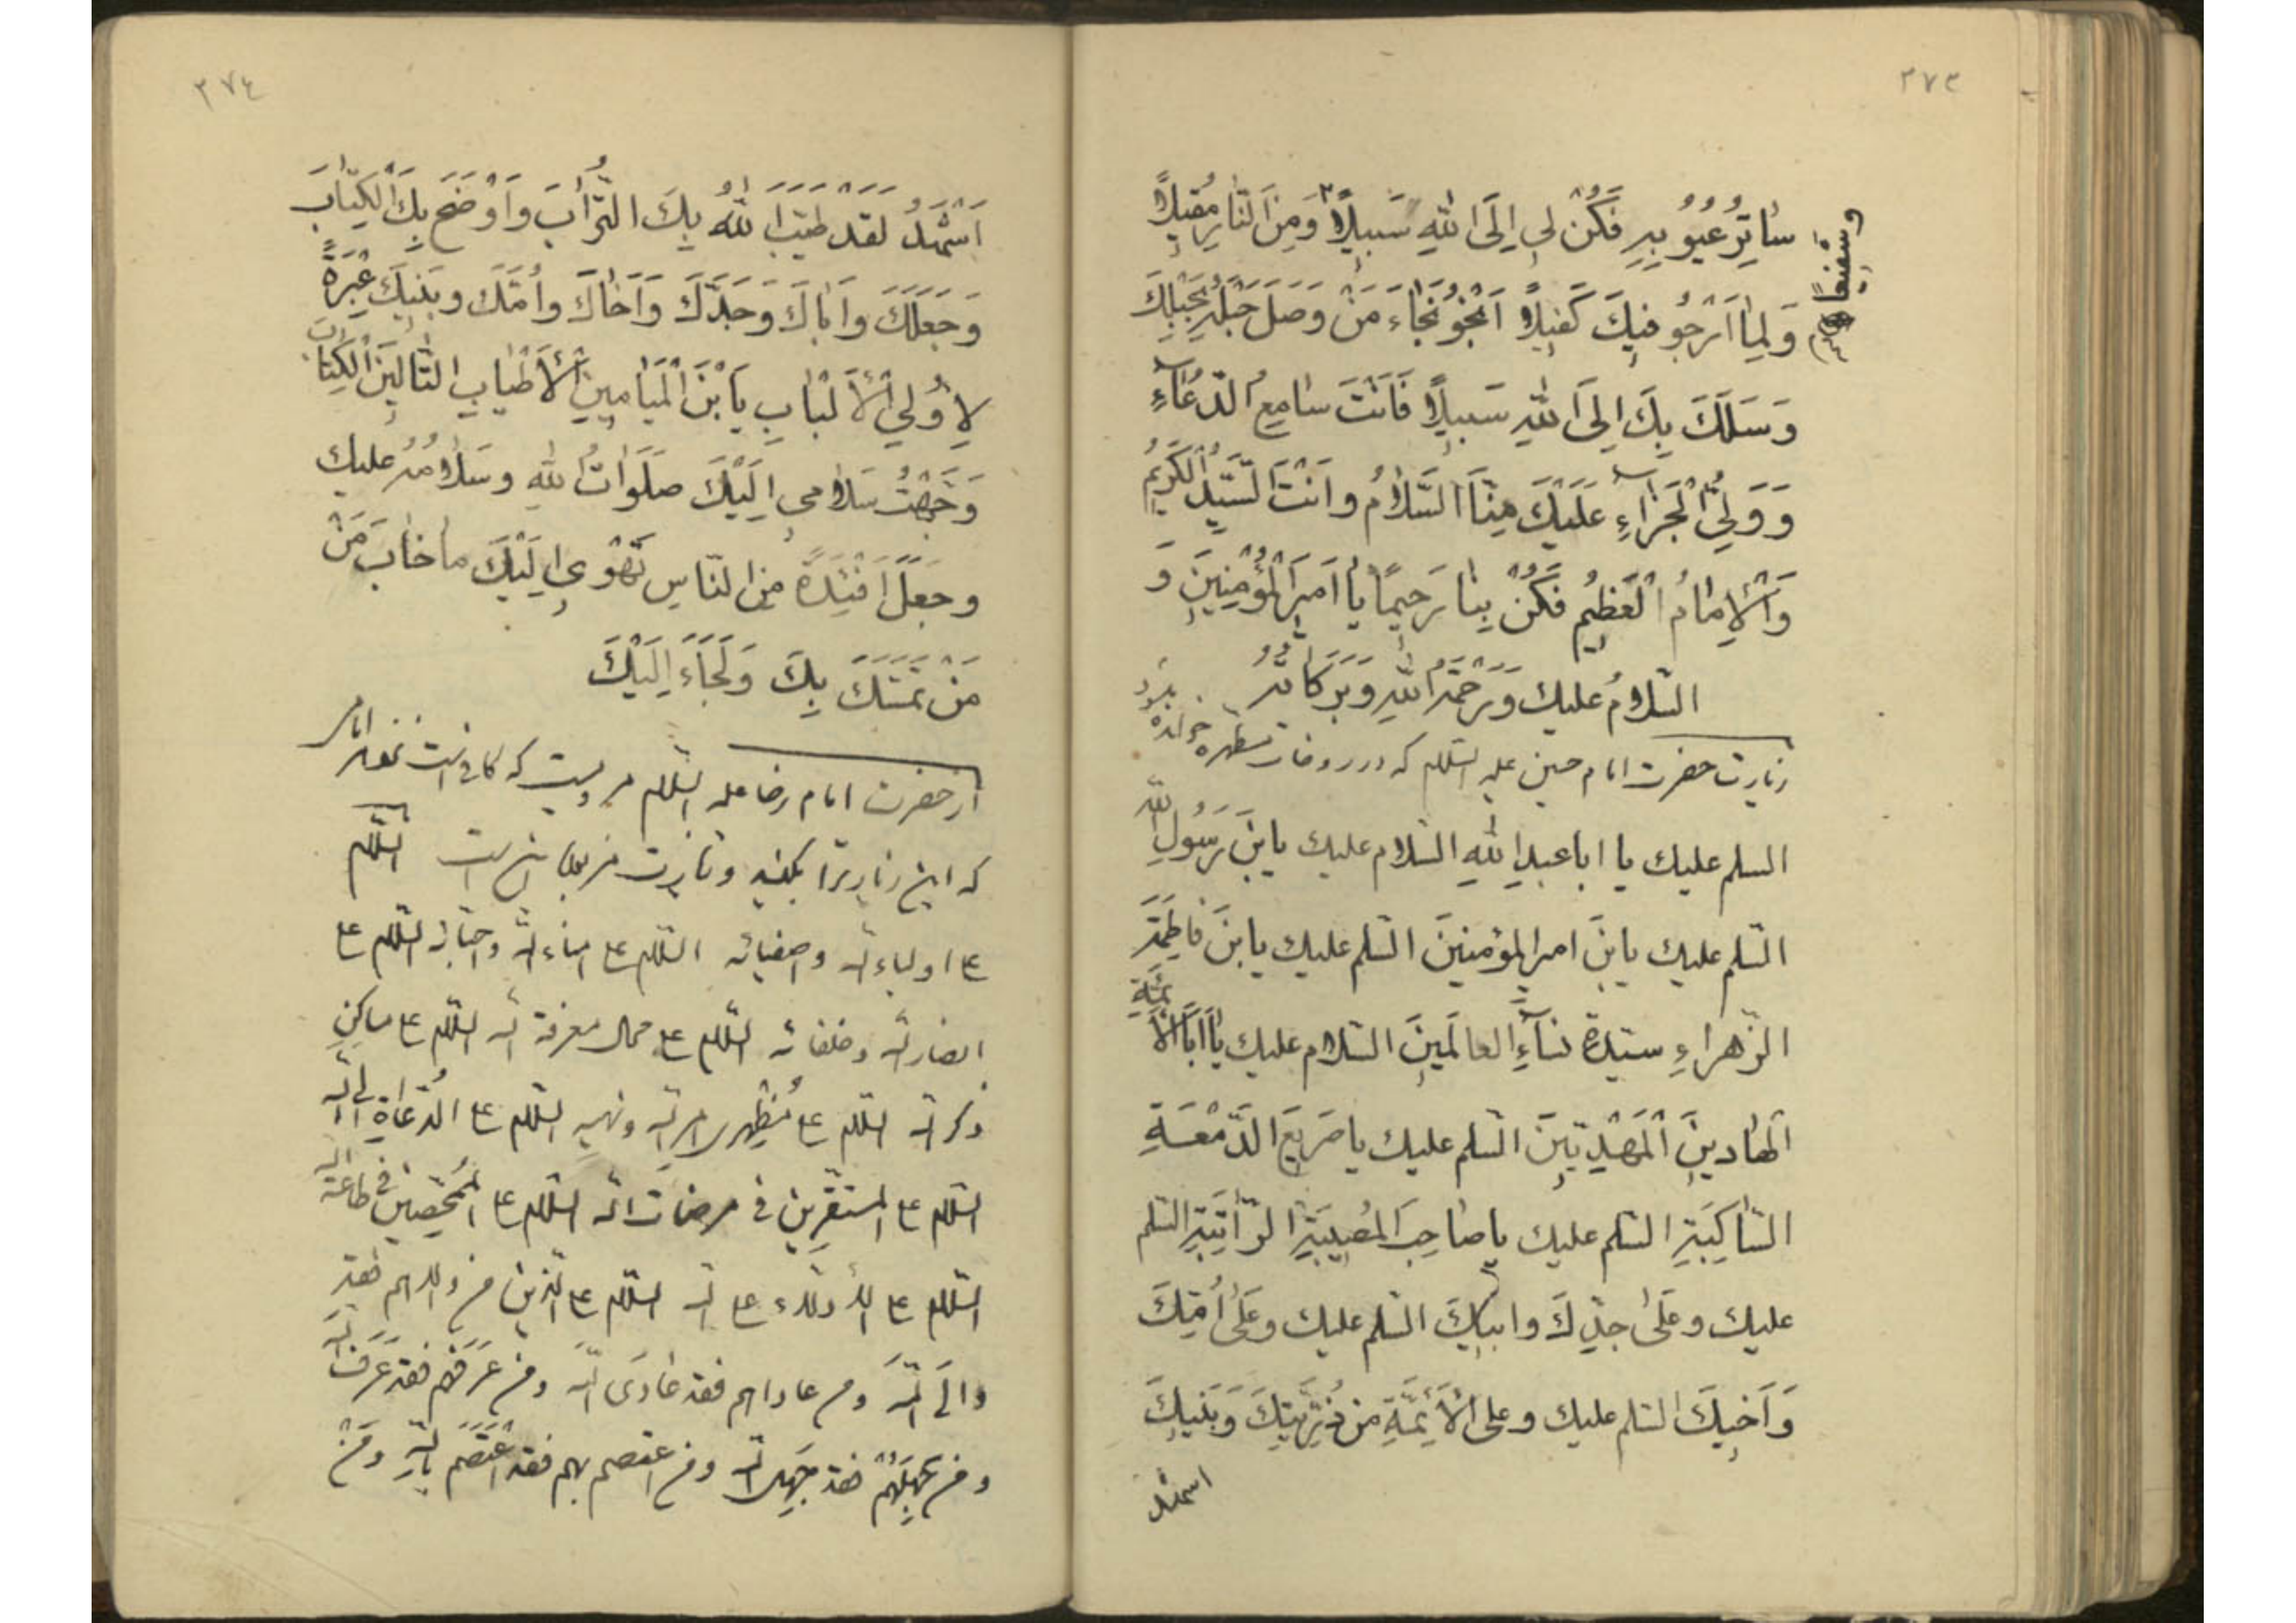 ٣٧٣
سٰاتِرُ عُيُوُبِهِ فَكُنْ لِي اِلَى اللهِ سَبيلاً وَمِنَ النّٰارِ مُقيلاً
وشفيعاً
وَلِمٰا اَرْجُو فيكَ كَفيلاً اَنْجُو نَجٰاءَ مَنْ وَصَلَ حَبْلَهُ بِحَبْلِكَ
وَسَلَكَ بِكَ اِلَى اللهِ سَبيلاً فَاَنْتَ سٰامِعُ الدُّعٰاءِ
وَوَلِيُّ الْجَزٰاءِ عَلَيْكَ مِنَّا السَّلاٰمُ وانْتَ السَّيِّدُ الْكَريمُ
وَالْاِمٰامُ الْعَظيمُ فَكُنْ بِنٰا رَحيمًا يٰا اَميرَ الْمُؤْمِنينَ وَ
السّلامُ عليك وَرَحْمَةُ اللهِ وَبَرَكٰاتُهُ
زيارت حضرت امام حسين عليه السّلم كه در روضات مطهره خوانده بشود
السلم عليك يا ابا عبدِ اللهِ السّلام عليك يابنَ رَسُولِ الله
السّلم عليك يابنَ امير المؤمنينَ السّلم عليك يابنَ فاطِمَةَ
الزّهراءِ سيّدةِ نسآءِ العالَمينَ السّلام عليك يٰا اَبَا الأَئِمَّةِ
الهٰادينَ الْمَهْدِيّينَ السّلم عليك يا صَريعَ الدَّمْعَةِ
السّٰاكِبَةِ السّلم عليك يا صٰاحِبَ المُصيبَةِ الرّٰاتِبَةِ السّلم
عليك وعَلىٰ جدِّكَ وابيكَ السّلم عليك وعَلىٰ اُمِّكَ
وَاَخيكَ السّلم عليك وعلى الْأَئِمَّةِ من ذُرِّيَّتِكَ وَبَنيكَ
اشهد
٣٧٤
اَشْهَدُ لَقَدْ طَيَّبَ اللهُ بِكَ التُّرٰابَ وَاَوْضَحَ بِكَ الْكِتٰابَ
وَجَعَلَكَ وَاَبٰاكَ وَجَدَّكَ وَاَخٰاكَ واُمَّكَ وبَنيكَ عِبْرَةً
لِاُولِي الْأَلْبٰابِ يَابْنَ الْمَيٰامينِ الْأَطْيٰابِ التّٰالينَ الْكِتٰابَ
وَجَّهْتُ سَلاٰمي اِلَيْكَ صَلَوٰاتُ اللهِ وسَلاٰمُهُ عليك
وجَعَلَ اَفْئِدَةً مِنَ النّاسِ تَهْوي اِلَيْكَ ما خٰابَ مَنْ
مَنْ تَمَسَّكَ بِكَ وَلَجَاءَ اِلَيْكَ
از حضرت امام رضا عليه السّلم مرويست كه كافي است نزد هر امام
كه اين زيارترا بكنيد السّلم
على اولياء الله واصفيائه السّلم على امناء الله واحبّائه السّلم على
انصار الله وخلفائه السّلم على محالّ معرفة الله السّلم على مساكن
ذكر الله السّلم على مُظهِري امر الله ونهيه السّلم على الدُّعاةِ الى الله
السّلم على المستقرّين في مرضات الله السّلم على المُمَحَّصين في طاعة الله
السّلم على الأدلّاء على الله السّلم على الّذين من والاهم فقد
والَى اللهَ ومن عاداهم فقد عٰادَى اللهَ ومن عَرَفَهُم فقد عَرَفَ الله
ومن جَهِلَهُمْ فقد جَهِلَ الله ومن اعتصم بهم فقد اعْتَصَمَ بِاللهِ ومَنْ